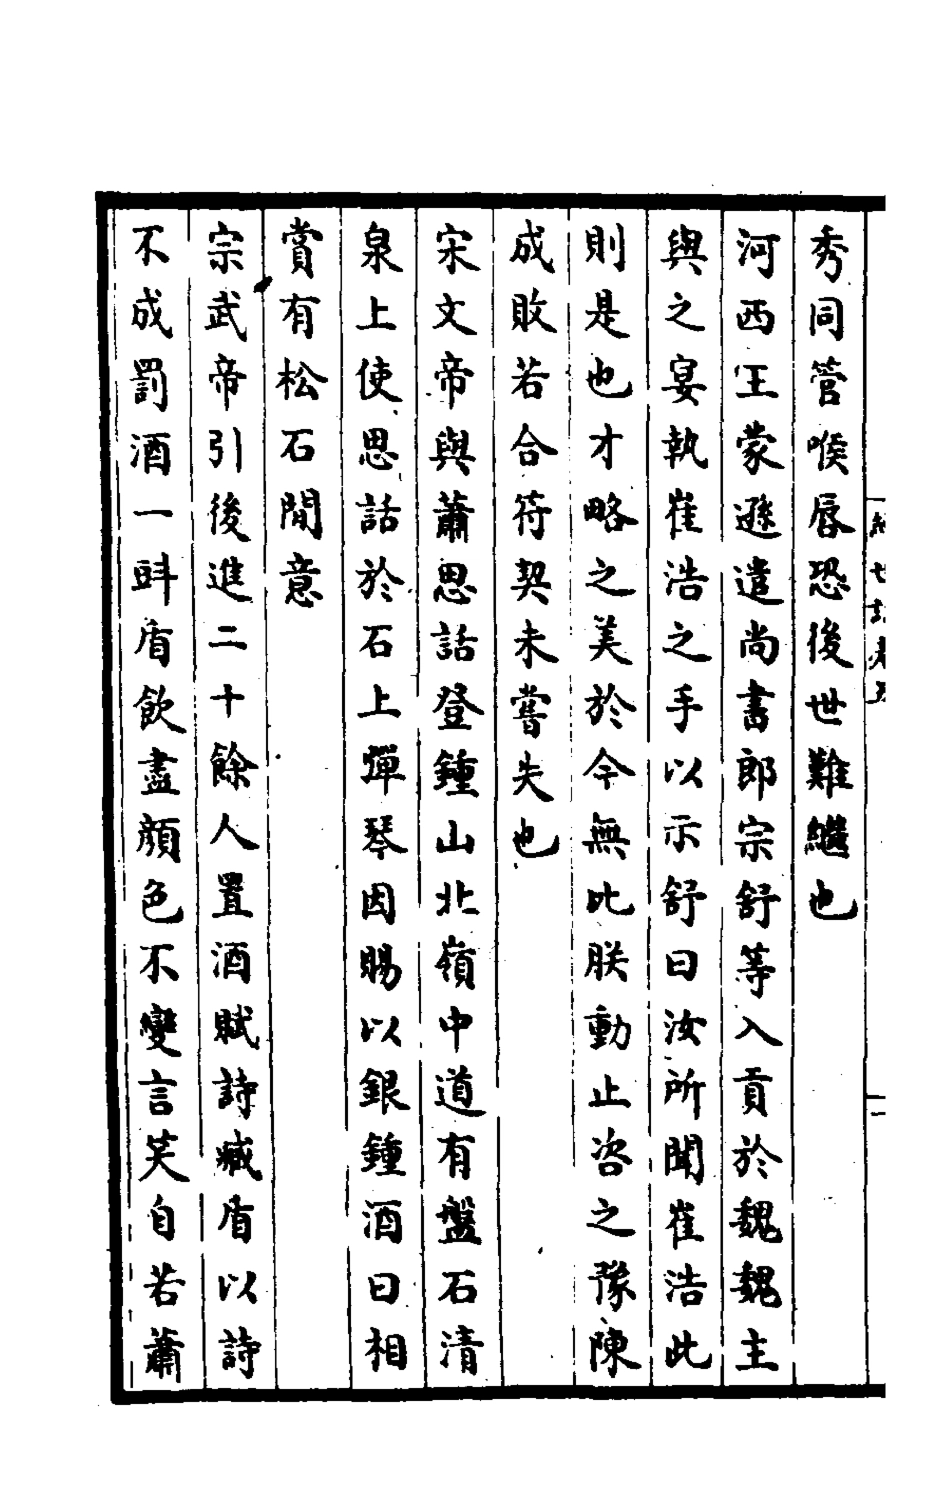 秀同管喉唇恐後世難繼也
河西王蒙遜遣尚書郎宗舒等入貢於魏魏主
與之宴執崔浩之手以示舒曰汝所聞崔浩此
則是也才略之美於今無比朕動止咨之豫陳
成敗若合符契未嘗失也
宋文帝與蕭思話登鍾山北嶺中道有盤石清
泉上使思話於石上彈琴因賜以銀鍾酒曰相
賞有松石閒意
宗武帝引後進二十餘人置酒賦詩臧盾以詩
不成罰酒一㪷盾飲盡顏色不變言笑自若蕭